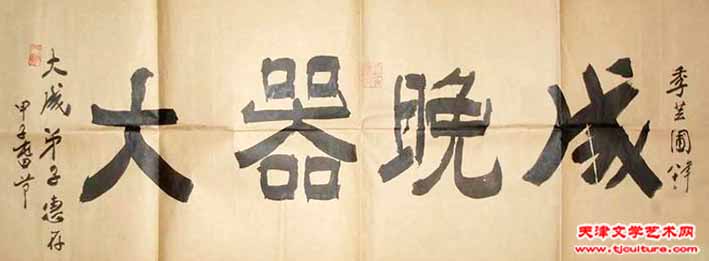 大器晚成
大成弟子惠存
甲子春节
季芝圃
天津文学艺术网
www.tjculture.com